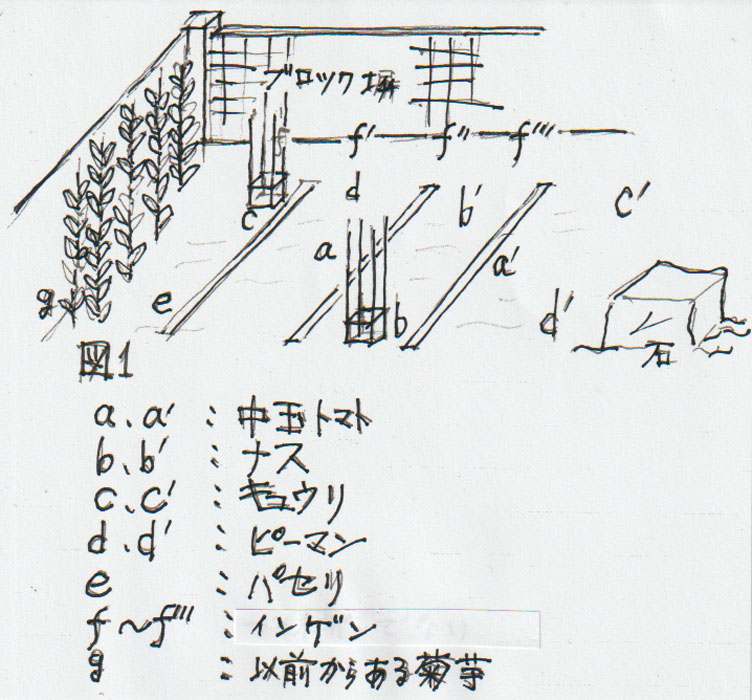 ブロック塀
f' f'' f'''
c d b' c'
a a'
g e b d'
石
図1
a、a' : 中玉トマト
b、b' : ナス
c、c' : キュウリ
d、d' : ピーマン
e : パセリ
f〜f''' : インゲン
g : 以前からある菊芋